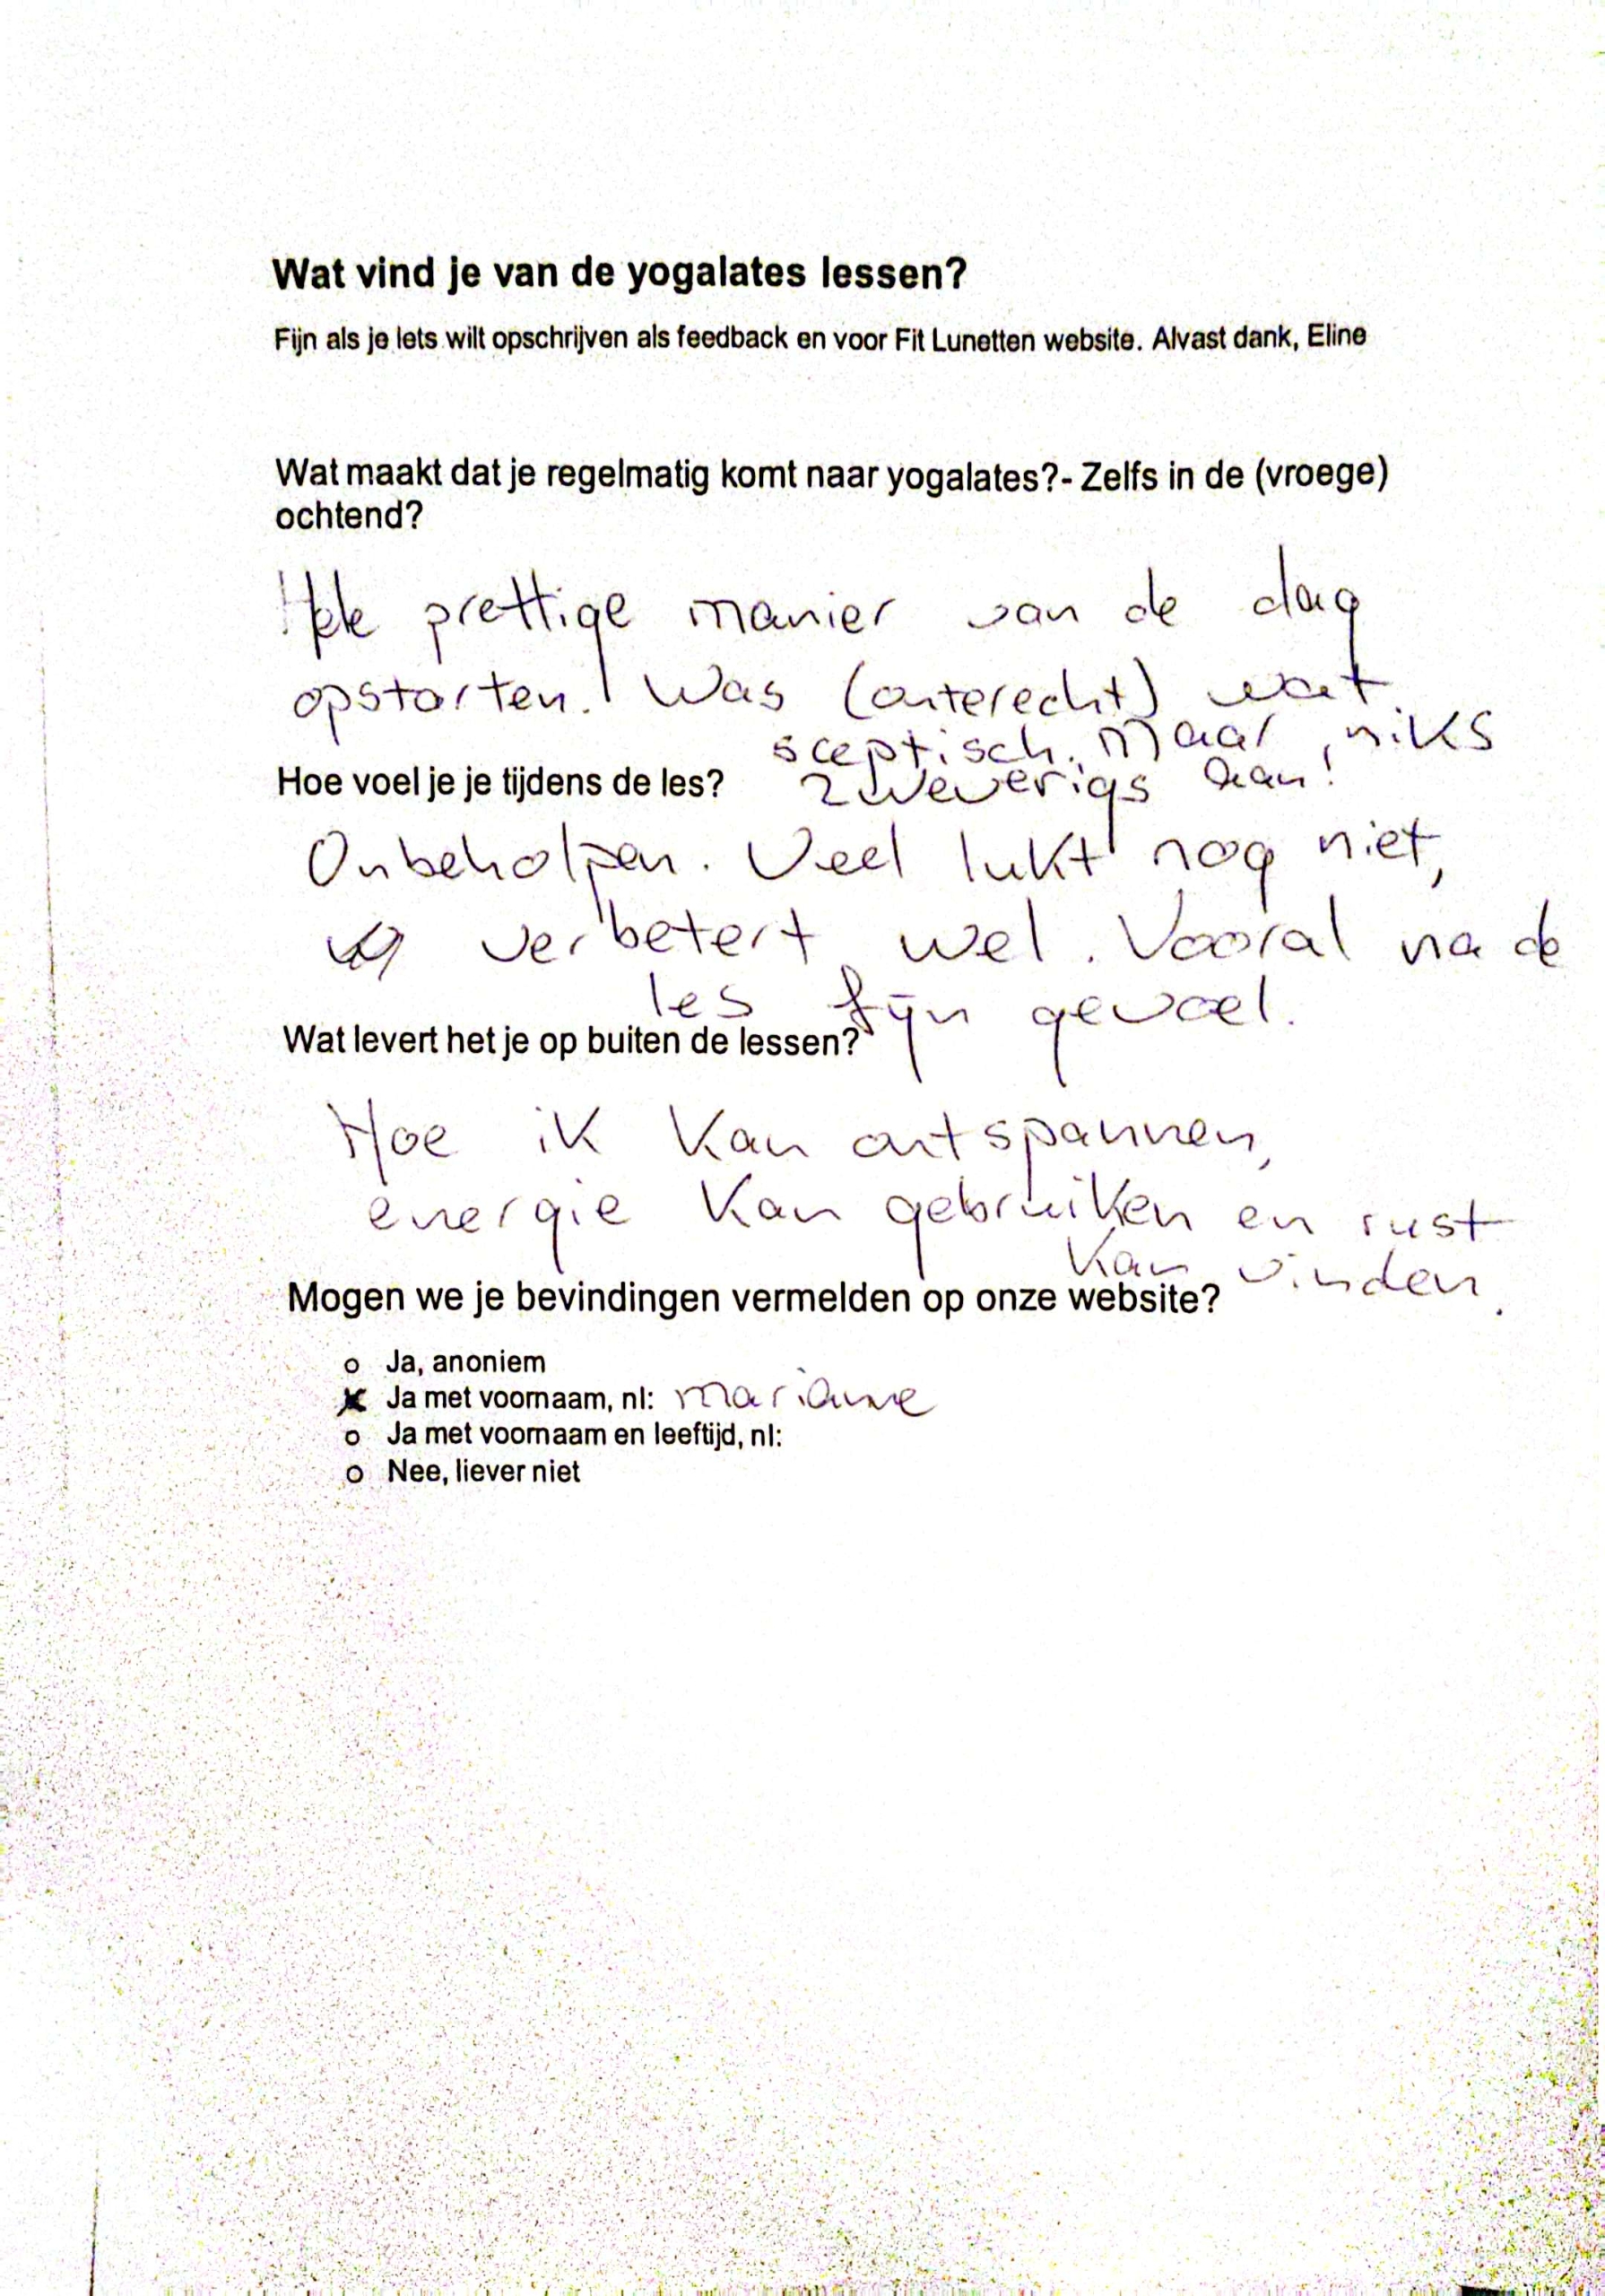 Wat vind je van de yogalates lessen?
Fijn als je iets wilt opschrijven als feedback en voor Fit Lunetten website. Alvast dank, Eline
Wat maakt dat je regelmatig komt naar yogalates?- Zelfs in de (vroege)
ochtend?
prettige manier van de dag
opstarten. Was (onterecht) wat
sceptisch. Maar, niks
zweverigs aan!
Hoe voel je je tijdens de les?
Onbeholpen. Veel lukt nog niet,
verbetert wel. Vooral na de
les fijn gevoel.
Wat levert het je op buiten de lessen?
Hoe ik kan ontspannen,
energie kan gebruiken en rust
kan vinden.
Mogen we je bevindingen vermelden op onze website?
o Ja, anoniem
x Ja met voornaam, nl: Marianne
o Ja met voornaam en leeftijd, nl:
o Nee, liever niet